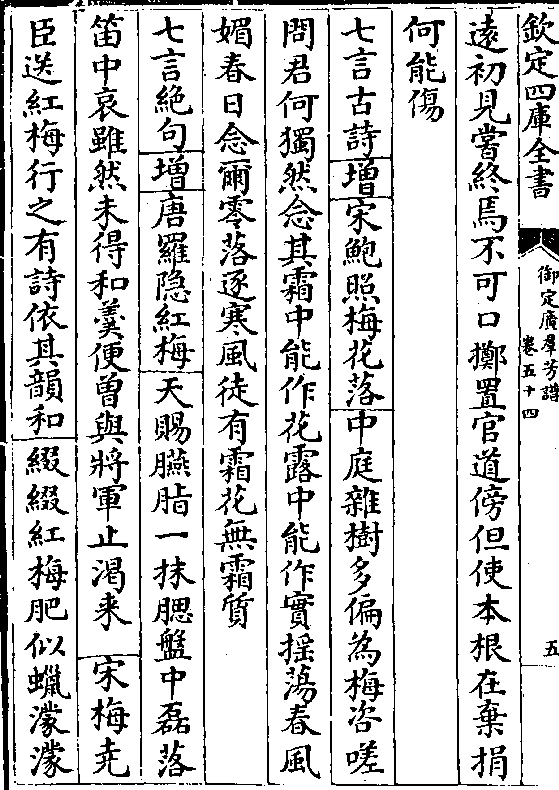 欽定四庫全書
御定廣羣芳譜
卷五十四
五
遠初見嘗終焉不可口擲置官道傍但使本根在棄捐
何能傷
七言古詩增宋鮑照梅花落中庭雜樹多偏為梅咨嗟
問君何獨然念其霜中能作花露中能作實揺蕩春風
媚春日念爾零落逐寒風徒有霜花無霜質
七言絶句增唐羅隐紅梅天賜臙脂一抹腮盤中磊落
笛中哀雖然未得和羮便曽與將軍止渴来宋梅尭
臣送紅梅行之有詩依其韻和綴綴紅梅肥似蠟濛濛